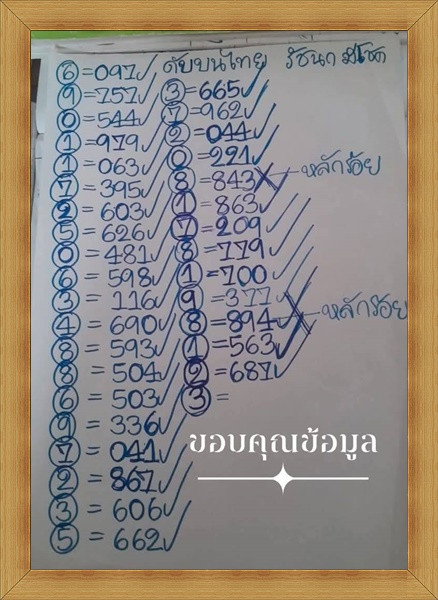 ดับบนไทย รัชนก มีโชค
6 = 097 ✓
9 = 757 ✓
0 = 544 ✓
1 = 979 ✓
1 = 063 ✓
7 = 395 ✓
2 = 603 ✓
5 = 626 ✓
0 = 481 ✓
6 = 598 ✓
3 = 116 ✓
4 = 690 ✓
8 = 593 ✓
8 = 504 ✓
6 = 503 ✓
9 = 336 ✓
7 = 041 ✓
2 = 867 ✓
3 = 606 ✓
5 = 662 ✓
3 = 665 ✓
7 = 962 ✓
2 = 044 ✓
0 = 221 ✓
8 = 843 X หลักร้อย
1 = 863 ✓
7 = 209 ✓
8 = 779 ✓
1 = 700 ✓
9 = 377 ✓
8 = 894 X หลักร้อย
1 = 563 ✓
2 = 687 ✓
3 =
ขอบคุณข้อมูล